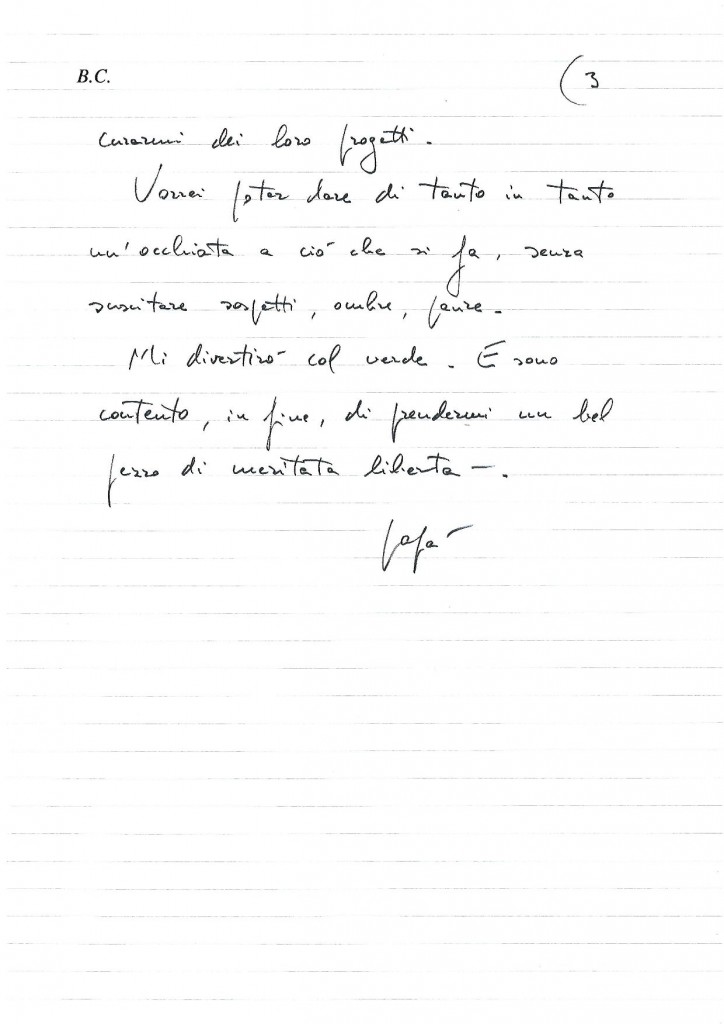 B.C.
(3
curarmi dei loro progetti.
Vorrei poter dare di tanto in tanto
un'occhiata a ciò che si fa, senza
suscitare sospetti, ombre, paure.
Mi divertirò col verde. E sono
contento, in fine, di prendermi un bel
pezzo di meritata libertà.
papà